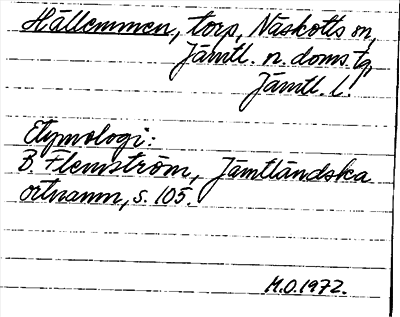 Hällemmen, torp, Näskotts sn,
Jämtl. n. doms. tg,
Jämtl. l.
Etymologi:
B. Flemström, Jämtländska
ortnamn, s. 105.
M.O.1972.